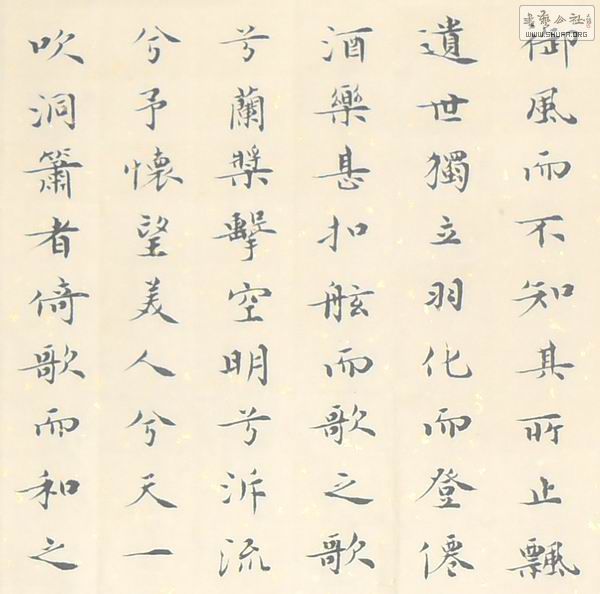 御風而不知其所止飄
遺世獨立羽化而登僊
酒樂甚扣舷而歌之歌
兮蘭槳擊空明兮泝流
兮予懷望美人兮天一
吹洞簫者倚歌而和之
WWW.SHUFA.ORG